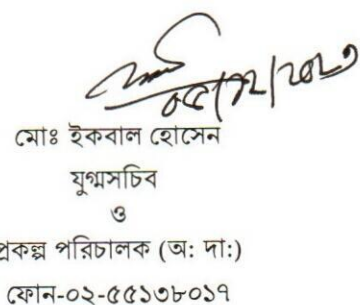 ০৫/১২/২০২৩
মোঃ ইকবাল হোসেন
যুগ্মসচিব
ও
প্রকল্প পরিচালক (অ: দা:)
ফোন-০২-৫৫১৩৮০১৭